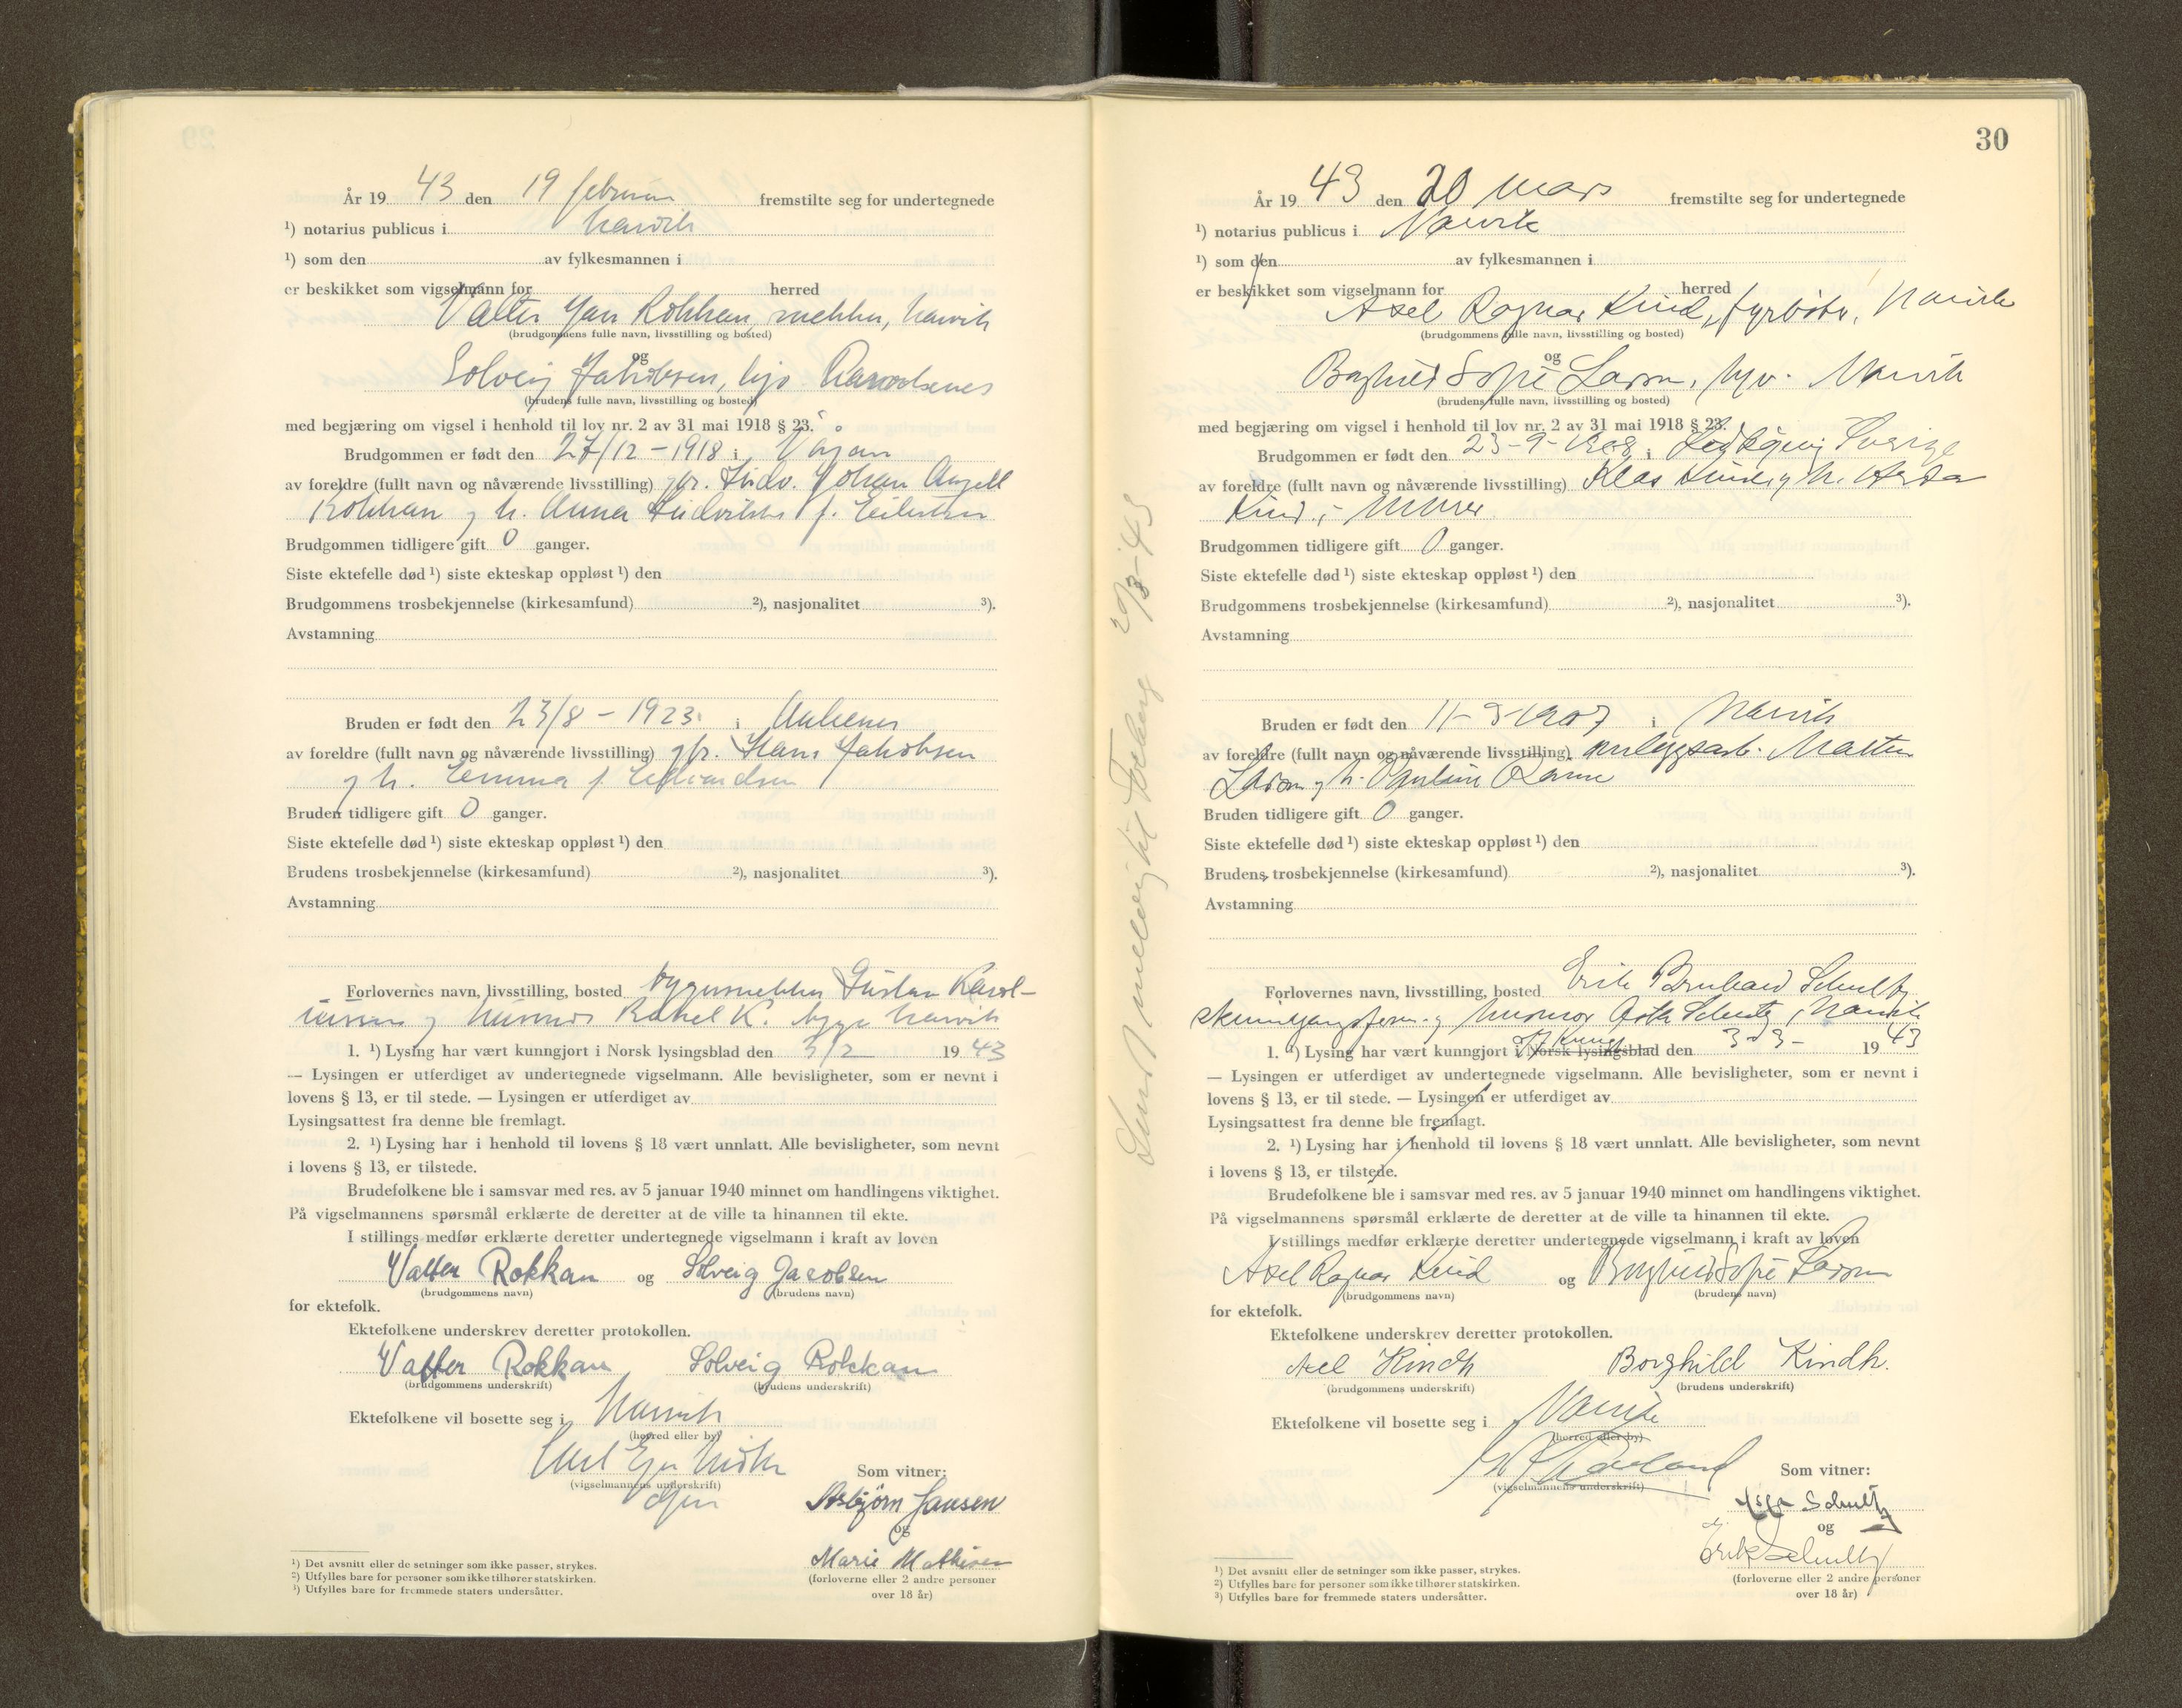 År 19 43 den 19 februar fremstilte seg for undertegnede
¹) notarius publicus i Narvik
¹) som den av fylkesmannen i
er beskikket som vigselmann for herred
Valter Jan Rokkan, snekker, Narvik
(brudgommens fulle navn, livsstilling og bosted)
og
Solveig Jakobsen,
(brudens fulle navn, livsstilling og bosted)
med begjæring om vigsel i henhold til lov nr. 2 av 31 mai 1918 § 23.
Brudgommen er født den 27/12 - 1918 i Vågan
av foreldre (fullt navn og nåværende livsstilling) gbr. Johan Angell
Rokkan og h. Anna f.
Brudgommen tidligere gift 0 ganger.
Siste ektefelle død ¹) siste ekteskap oppløst ¹) den
Brudgommens trosbekjennelse (kirkesamfund) ²), nasjonalitet ³).
Avstamning
Bruden er født den 23/8 - 1923 i Ankenes
av foreldre (fullt navn og nåværende livsstilling) gbr. Hans Jakobsen
og h. Emma f. Edvardsen
Bruden tidligere gift 0 ganger.
Siste ektefelle død ¹) siste ekteskap oppløst ¹) den
Brudens trosbekjennelse (kirkesamfund) ²), nasjonalitet ³).
Avstamning
Forlovernes navn, livsstilling, bosted byggsnekker Gustav Karol-
iussen og Rakel K. begge Narvik
1. ¹) Lysing har vært kunngjort i Norsk lysingsblad den 3/2 19 43
— Lysingen er utferdiget av undertegnede vigselmann. Alle bevisligheter, som er nevnt i
lovens § 13, er til stede. — Lysingen er utferdiget av
Lysingsattest fra denne ble fremlagt.
2. ¹) Lysing har i henhold til lovens § 18 vært unnlatt. Alle bevisligheter, som nevnt
i lovens § 13, er tilstede.
Brudefolkene ble i samsvar med res. av 5 januar 1940 minnet om handlingens viktighet.
På vigselmannens spørsmål erklærte de deretter at de ville ta hinannen til ekte.
I stillings medfør erklærte deretter undertegnede vigselmann i kraft av loven
Valter Rokkan og Solveig Jacobsen
(brudgommens navn) (brudens navn)
for ektefolk.
Ektefolkene underskrev deretter protokollen.
Valter Rokkan Solveig Rokkan
(brudgommens underskrift) (brudens underskrift)
Ektefolkene vil bosette seg i Narvik
(herred eller by)
Som vitner:
(vigselmannens underskrift)
Asbjørn Jansen
og
Marie Mathisen
(forloverne eller 2 andre personer
over 18 år)
¹) Det avsnitt eller de setninger som ikke passer, strykes.
²) Utfylles bare for personer som ikke tilhører statskirken.
³) Utfylles bare for fremmede staters undersåtter.
30
29/3-43
År 19 43 den 20 mars fremstilte seg for undertegnede
¹) notarius publicus i Narvik
¹) som den av fylkesmannen i
er beskikket som vigselmann for herred
Axel Ragnar Kind, fyrbøter, Narvik
(brudgommens fulle navn, livsstilling og bosted)
og
Borghild Sofie Larsen, Narvik
(brudens fulle navn, livsstilling og bosted)
med begjæring om vigsel i henhold til lov nr. 2 av 31 mai 1918 § 23.
Brudgommen er født den 23-9-1908 i Sverige
av foreldre (fullt navn og nåværende livsstilling) Klas Kind og h.
Kind,
Brudgommen tidligere gift 0 ganger.
Siste ektefelle død ¹) siste ekteskap oppløst ¹) den
Brudgommens trosbekjennelse (kirkesamfund) ²), nasjonalitet ³).
Avstamning
Bruden er født den 11-3-1907 i Narvik
av foreldre (fullt navn og nåværende livsstilling) anleggsarb.
Larsen og h.
Bruden tidligere gift 0 ganger.
Siste ektefelle død ¹) siste ekteskap oppløst ¹) den
Brudens trosbekjennelse (kirkesamfund) ²), nasjonalitet ³).
Avstamning
Forlovernes navn, livsstilling, bosted Erik Bernhard Schultz
og Schultz, Narvik
1. ¹) Lysing har vært kunngjort i Norsk lysingsblad den 3-3- 19 43
— Lysingen er utferdiget av undertegnede vigselmann. Alle bevisligheter, som er nevnt i
lovens § 13, er til stede. — Lysingen er utferdiget av
Lysingsattest fra denne ble fremlagt.
2. ¹) Lysing har i henhold til lovens § 18 vært unnlatt. Alle bevisligheter, som nevnt
i lovens § 13, er tilstede.
Brudefolkene ble i samsvar med res. av 5 januar 1940 minnet om handlingens viktighet.
På vigselmannens spørsmål erklærte de deretter at de ville ta hinannen til ekte.
I stillings medfør erklærte deretter undertegnede vigselmann i kraft av loven
Axel Ragnar Kind og Borghild Sofie Larsen
(brudgommens navn) (brudens navn)
for ektefolk.
Ektefolkene underskrev deretter protokollen.
Axel Kindh Borghild Kindh.
(brudgommens underskrift) (brudens underskrift)
Ektefolkene vil bosette seg i Narvik
(herred eller by)
Som vitner:
(vigselmannens underskrift)
Schultz
og
Erik Schultz
(forloverne eller 2 andre personer
over 18 år)
¹) Det avsnitt eller de setninger som ikke passer, strykes.
²) Utfylles bare for personer som ikke tilhører statskirken.
³) Utfylles bare for fremmede staters undersåtter.